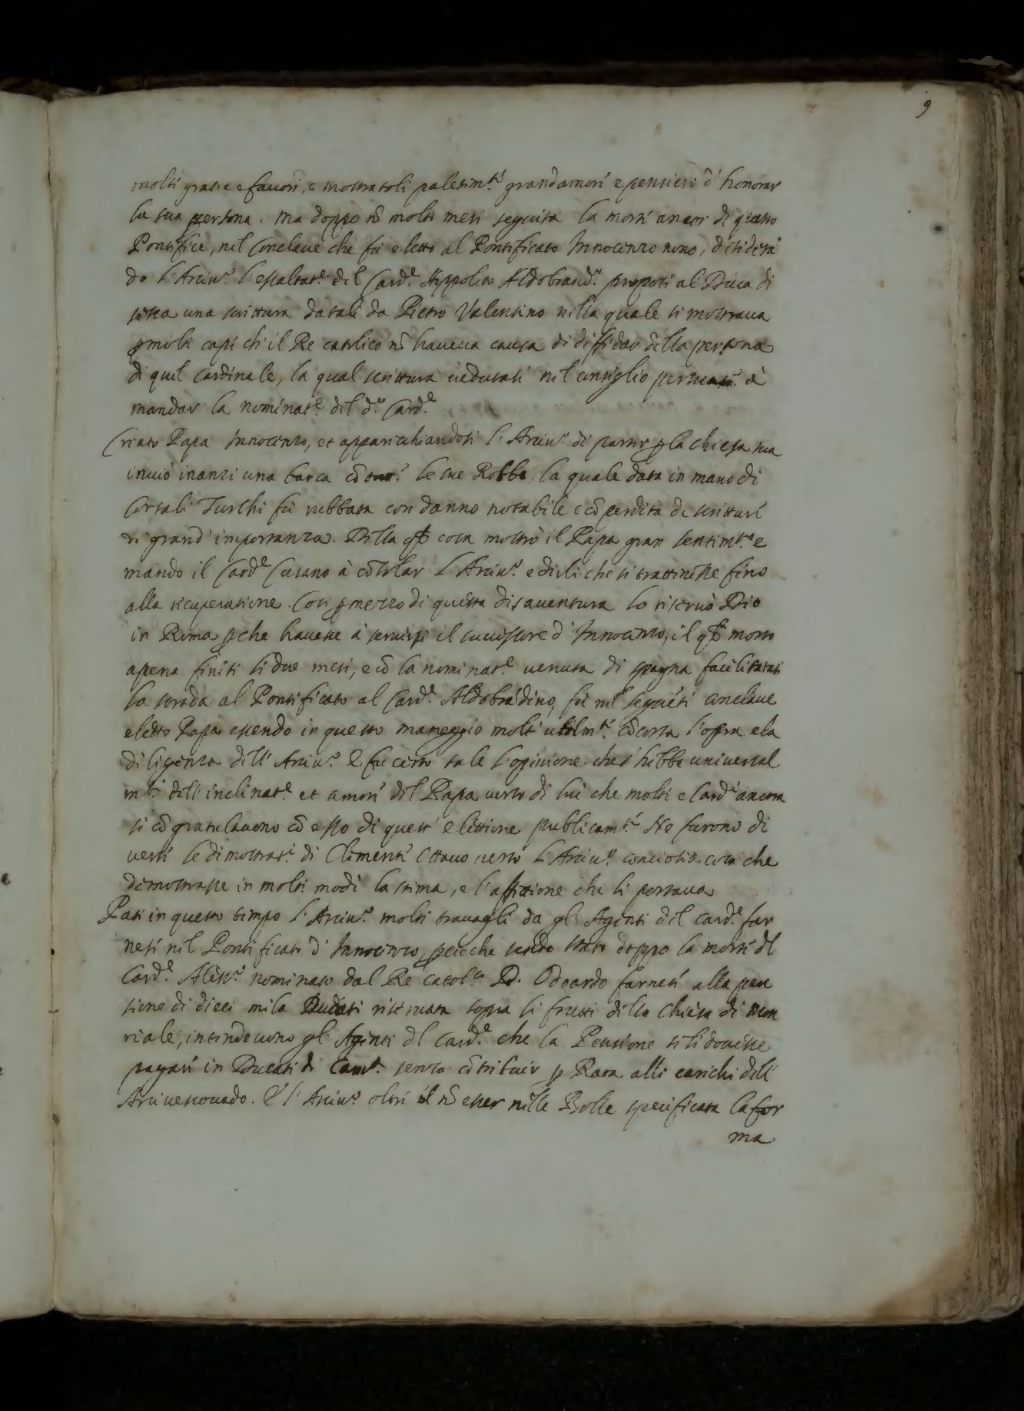 9
molte gratie e fauori, e mostratoli palesim.te grand'amore e pensiero d' honorar
la sua persona. Ma doppo nõ molti mesi seguita la morte ancor di questo
Pontifice, nel Conclaue che fù eletto al Pontificato Innocenzo nono, desiderã
do l'Arciu.o l'essaltat.e del Card.e Hyppolito Aldobrand.o propose al Duca di
sessa una scrittura datali da Pietro Valentino nella quale si mostraua
p molti capi ch' il Re catolico nõ haueua causa di diffidar della persona
di quel Cardinale, la qual scrittura uedutasi nel consiglio
mandar la nominat.e del d.o Card.e
Criato Papa Innocenzo, et apparichiandosi l'Arciu.o di partir p la chiesa sua
inuiò inanzi una barca cõ le sue Robbe, la quale data in mano di
Corsali Turchi fù rubbata con danno notabile e cõ perdita de scritture
di grand' importanza. Della q̃l cosa mostrò il Papa gran sentim.to e
mandò il Card.e Cusano à cõsolar l'Arciu.o e dirli che si trattenisse fino
alla ricuperatione. Così p mezzo di questa disauentura lo riseruò Dio
in Roma p che hauesse à seruirsi il successore d' Innocenzo, il q̃l morto
apena finiti li due mesi, e cõ la nominat.e uenuta di spagna facilitatasi
la strada al Pontificato al Card.e Aldobrãdino, fù nel seguẽte conclaue
eletto Papa essendo in questo maneggio molto utilm.te cõcorsa l'opra e la
diligenza dell' Arciu.o E fù certo tale l'opinione che s' hebbe uniuersal
m.te dell' inclinat.e et amore del Papa uerso di lui che molti e Card.i ancora
si cõgratulauono cõ esso di quest' elettione publicam.te Ne furono di
uerse le dimostrat.i di Clemente Ottauo uerso l'Arciu.o conciosia cosa che
dimostrasse in molti modi la stima, e l'affettione che li portaua
Patì in questo tempo l'Arciu.o molti trauagli da gl' Agenti del Card.e far
nese nel Pontificato d' Innocenzo, percioche sendo stato doppo la morte del
Card.e Aless.o nominato dal Re Catol.co D. Odoardo farnese alla pen
sione di dieci mila Ducati riseruata sopra li frutti della Chiesa di Mon
riale, intendeuono gl' Agenti del Card.e che la Pensione se li douesse
pagare in Ducati di Cam.a senza cõtribuir p Rata alli carichi dell'
Arciuescouado. E l'Arciu.o oltre il nõ esser nelle Bolle specificata la for
ma